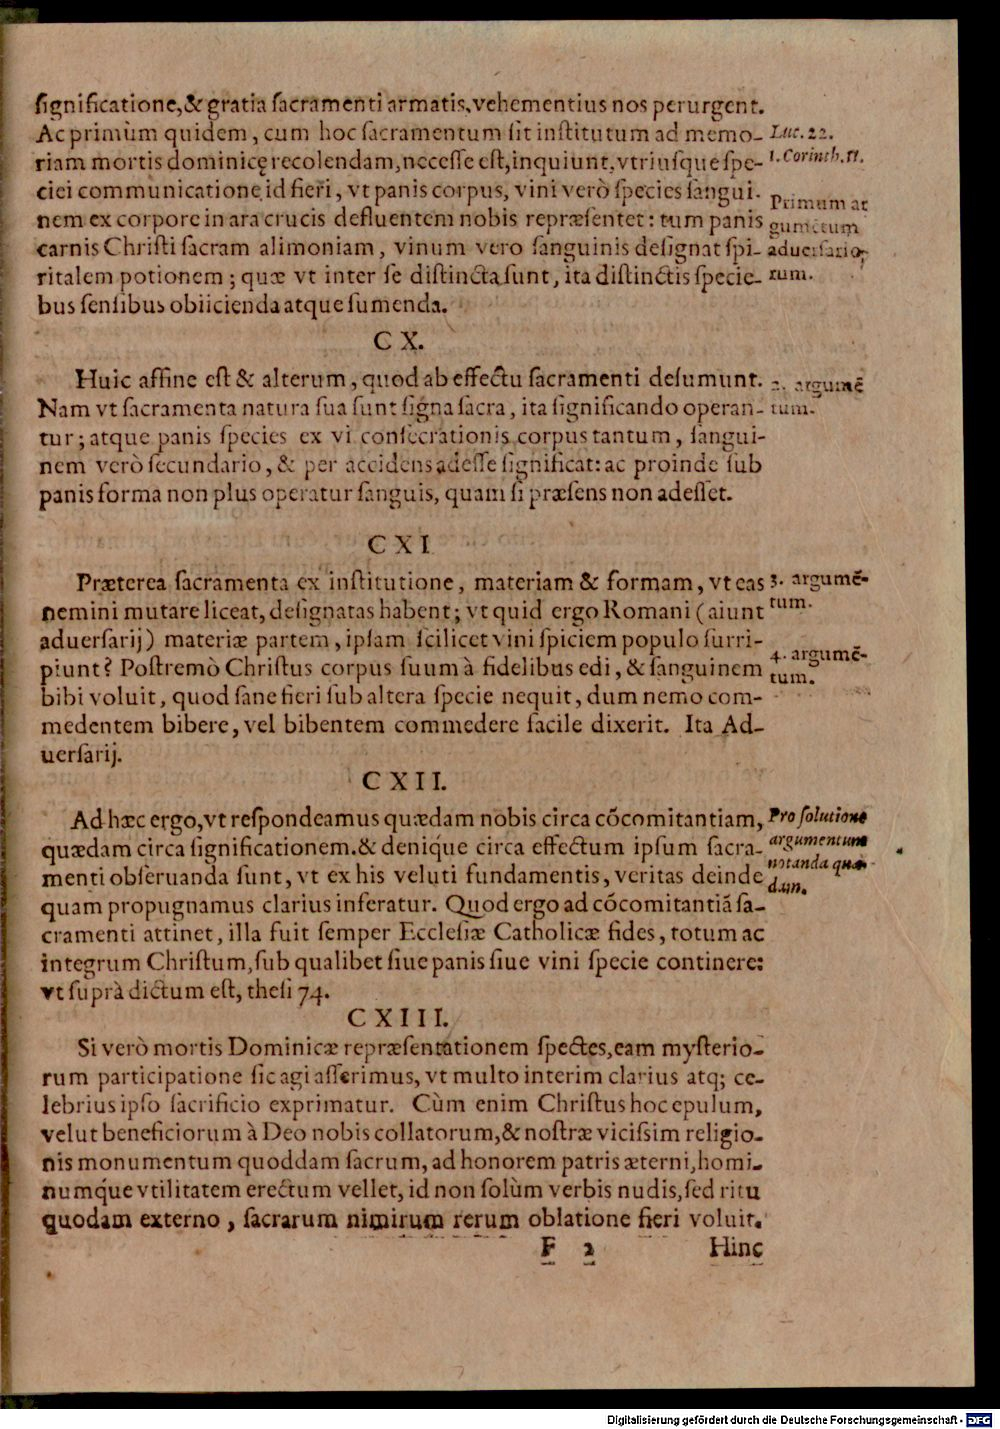 ſignificatione,& gratia ſacramenti armatis, vehementius nos perurgent.
Ac primùm quidem, cum hoc ſacramentum ſit inſtitutum ad memo-
riam mortis dominicę recolendam, neceſſe eſt, inquiunt, vtriuſque ſpe-
ciei communicatione id fieri, vt panis corpus, vini verò ſpecies ſangui-
nem ex corpore in ara crucis defluentem nobis repræſentet: tum panis
carnis Chriſti ſacram alimoniam, vinum vero ſanguinis deſignat ſpi-
ritalem potionem; quæ vt inter ſe diſtincta ſunt, ita diſtinctis ſpecie-
bus ſenſibus obiicienda atque ſumenda.
Luc. 22.
1. Corinth. 11.
Primum ar
gumẽtum
aduerſario-
rum.
C X.
Huic affine eſt & alterum, quod ab effectu ſacramenti deſumunt.
Nam vt ſacramenta natura ſua ſunt ſigna ſacra, ita ſignificando operan-
tur; atque panis ſpecies ex vi conſecrationis corpus tantum, ſangui-
nem verò ſecundario, & per accidens adeſſe ſignificat: ac proinde ſub
panis forma non plus operatur ſanguis, quam ſi præſens non adeſſet.
2. argumẽ
tum.
C X I
Præterea ſacramenta ex inſtitutione, materiam & formam, vt eas
nemini mutare liceat, deſignatas habent; vt quid ergo Romani (aiunt
aduerſarij) materiæ partem, ipſam ſcilicet vini ſpiciem populo ſurri-
piunt? Poſtremò Chriſtus corpus ſuum à fidelibus edi, & ſanguinem
bibi voluit, quod ſane fieri ſub altera ſpecie nequit, dum nemo com-
medentem bibere, vel bibentem commedere facile dixerit. Ita Ad-
uerſarij.
3. argumẽ-
tum.
4. argumẽ-
tum.
C X I I.
Ad hæc ergo, vt reſpondeamus quædam nobis circa cõcomitantiam,
quædam circa ſignificationem. & deniq́ue circa effectum ipſum ſacra-
menti obſeruanda ſunt, vt ex his veluti fundamentis, veritas deinde
quam propugnamus clarius inferatur. Quod ergo ad cõcomitantiã ſa-
cramenti attinet, illa fuit ſemper Eccleſiæ Catholicæ fides, totum ac
integrum Chriſtum, ſub qualibet ſiue panis ſiue vini ſpecie continere:
vt ſuprà dictum eſt, theſi 74.
Pro ſolutione
argumentum
notanda quæ-
dam.
C X I I I.
Si verò mortis Dominicæ repræſentationem ſpectes, eam myſterio-
rum participatione ſic agi aſſerimus, vt multo interim clarius atq; ce-
lebrius ipſo ſacrificio exprimatur. Cùm enim Chriſtus hoc epulum,
velut beneficiorum à Deo nobis collatorum, & noſtræ viciſsim religio-
nis monumentum quoddam ſacrum, ad honorem patris æterni, homi-
numq́ue vtilitatem erectum vellet, id non ſolùm verbis nudis, ſed ritu
quodam externo, ſacrarum nimirum rerum oblatione fieri voluit.
F 2 Hinc
Digitalisierung gefördert durch die Deutsche Forschungsgemeinschaft - DFG